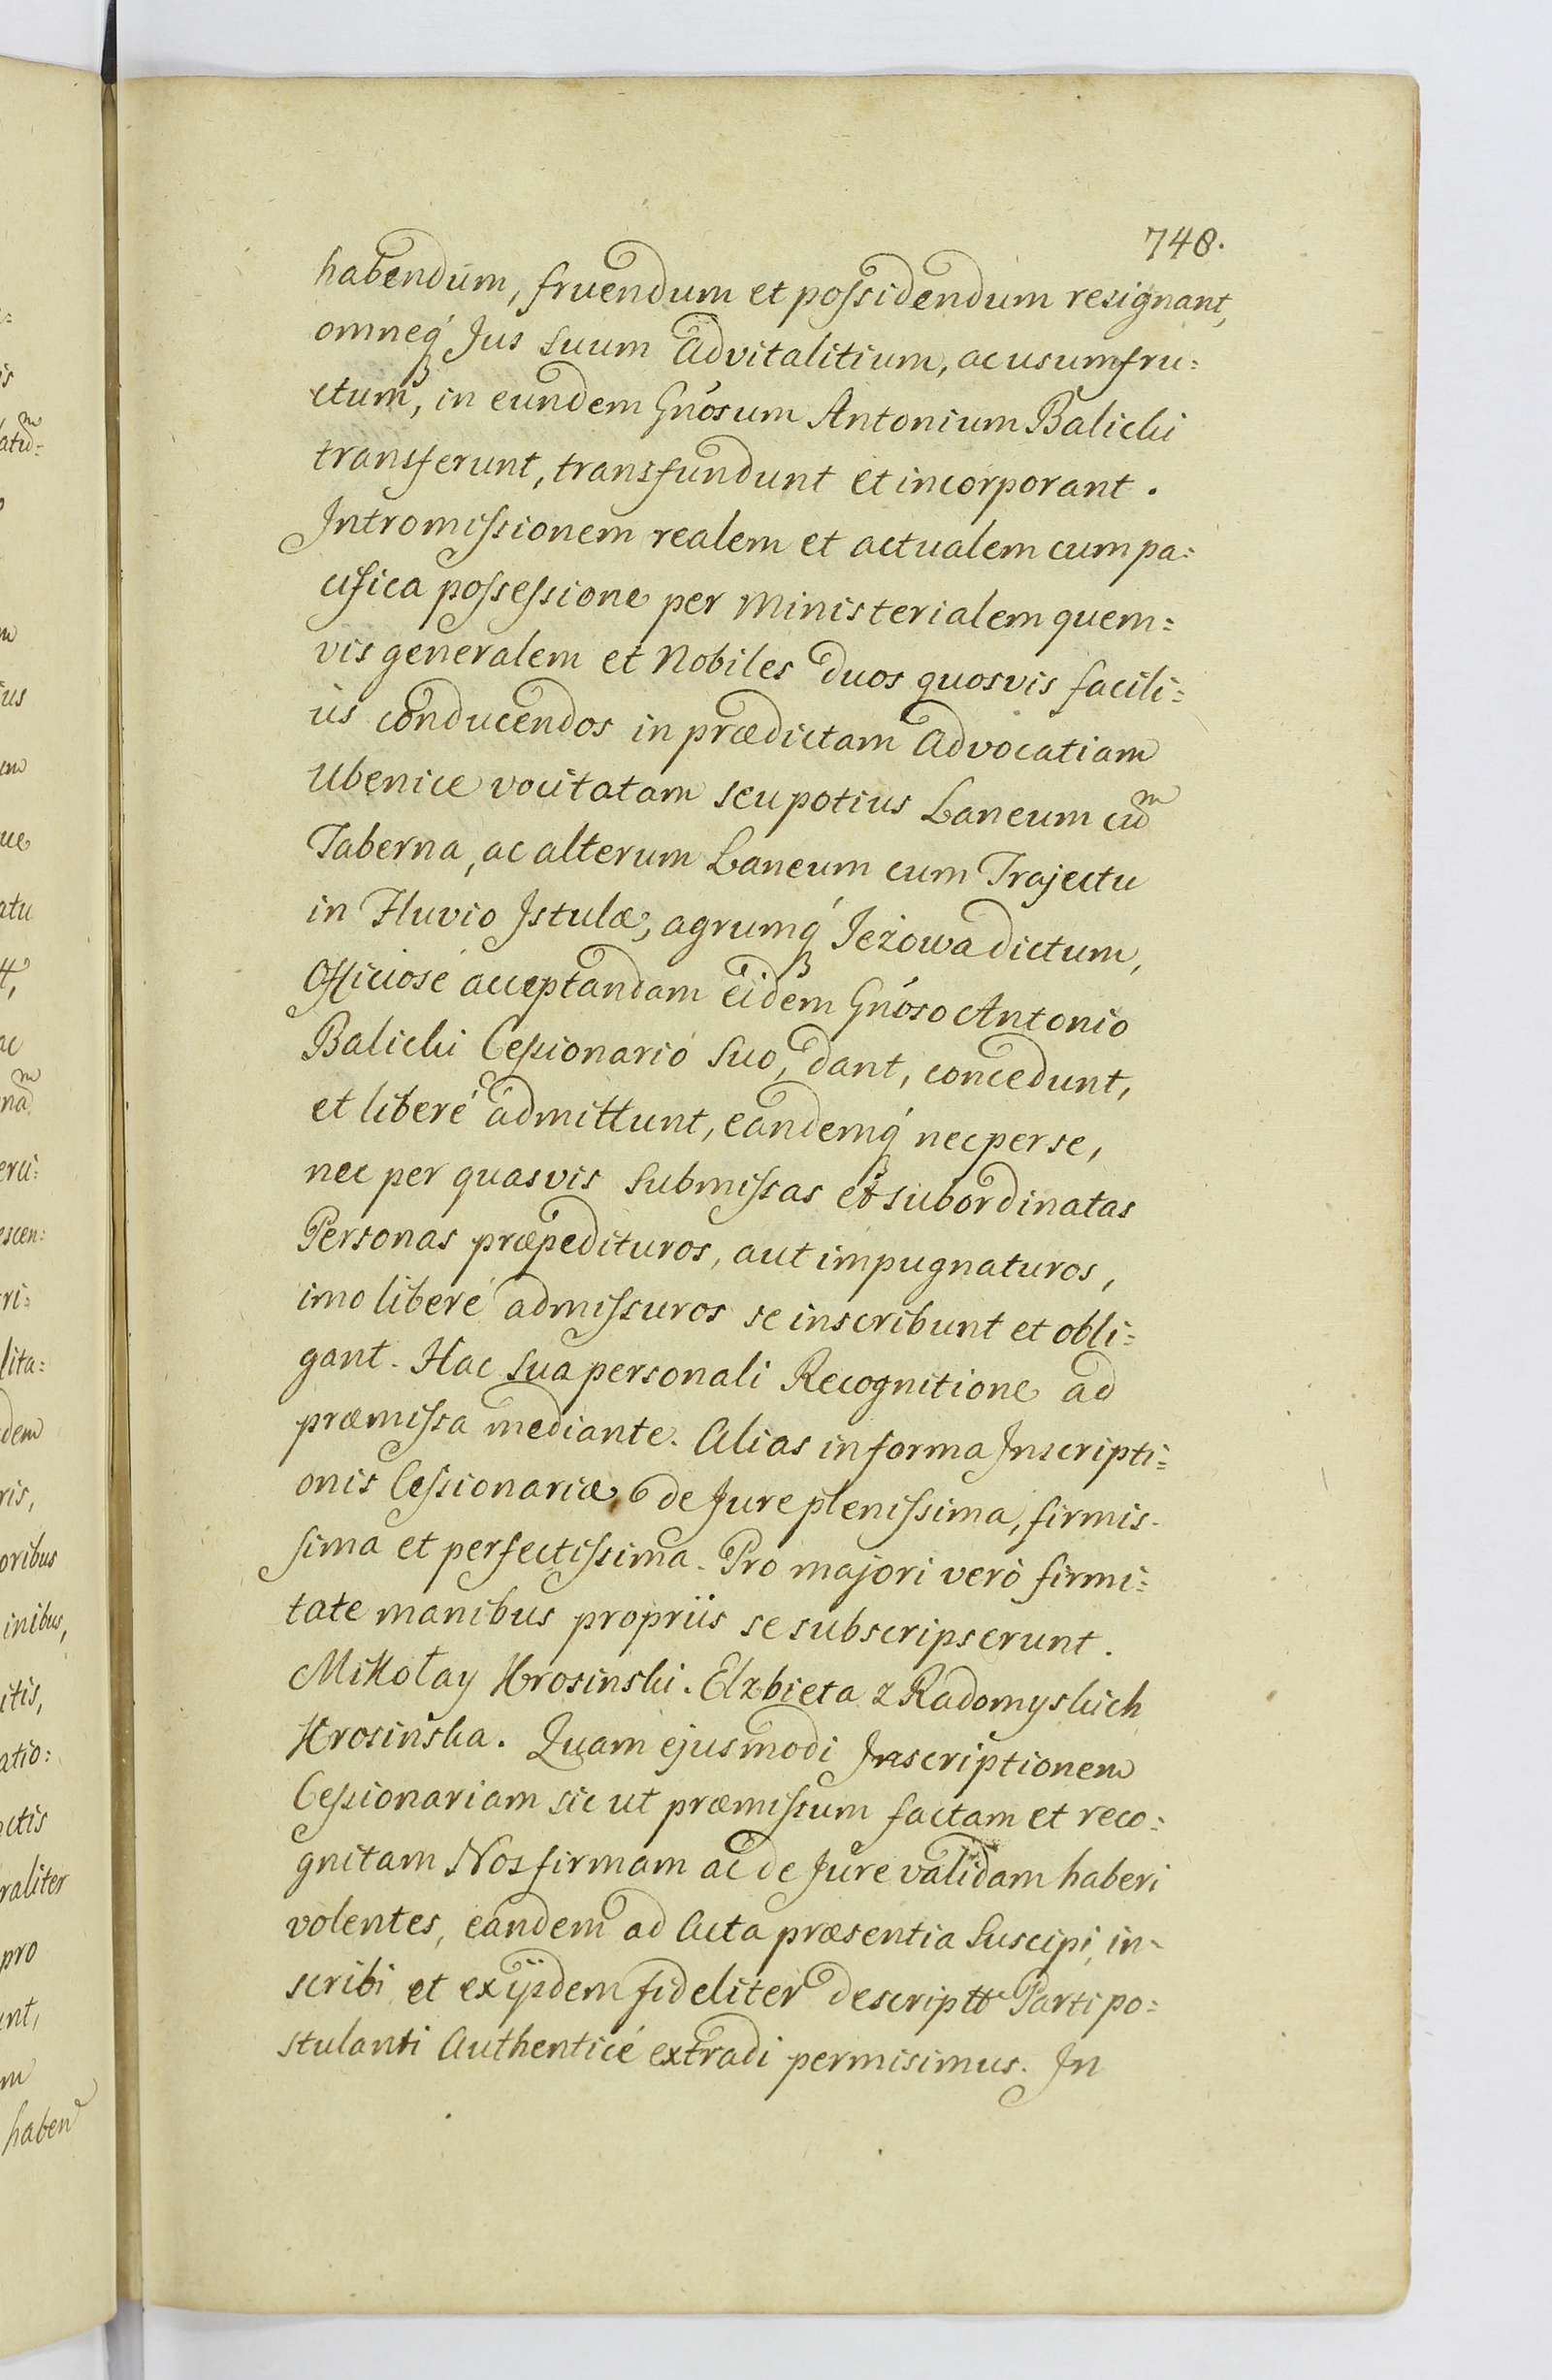 748.
habendum, fruendum et possidendum resignant,
omneq́ Jus suum Advitalitium, ac usumfru=
ctum, in eundem Gnósum Antonium Balicki
transferunt, transfundunt et incorporant.
Intromissionem realem et actualem cum pa=
cifica possessione per Ministerialem quem=
vis generalem et Nobiles duos quosvis facili=
ùs conducendos in prædictam Advocatiam
Ubenice vocitatam seu potius Laneum cum
Taberna, ac alterum Laneum cum Trajectu
in Fluvio Istulæ, agrumq́ Jeżowa dictum,
Officiosé acceptandam eidem Gnóso Antonio
Balicki Cessionario suo, dant, concedunt,
et liberé admittunt, eandemq́ nec per se,
nec per quasvis submissas et subordinatas
Personas præpedituros, aut impugnaturos,
imo liberé admissuros se inscribunt et obli=
gant. Hac sua personali Recognitione ad
præmissa mediante. Alias in forma Inscripti=
onis Cessionariæ de Jure plenissima, firmis-
sima et perfectissima. Pro majori verò firmi=
tate manibus propriis se subscripserunt.
Mikołay Krosinski. Elzbieta z Radomyskich
Krosińska. Quam ejusmodi Inscriptionem
Cessionariam sic ut præmissum factam et reco=
gnitam Nos firmam ac de Jure validam haberi
volentes, eandem ad Acta præsentia Suscipi, in-
scribi et ex ijsdem fideliter descriptt Parti po=
stulanti Authenticé extradi permisimus. In